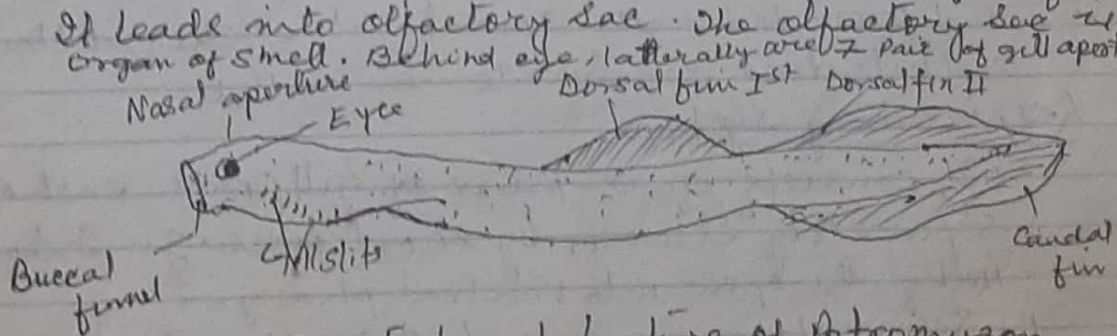 It leads into olfactory sac. The olfactory sac is
organ of smell. Behind eye, latterally are 7 pair of gill aper
Nasal aperture
Eyes
Dorsal fin Ist
Dorsal fin II
Buccal
funnel
Gillslits
Caudal
fin
of Petromyzon